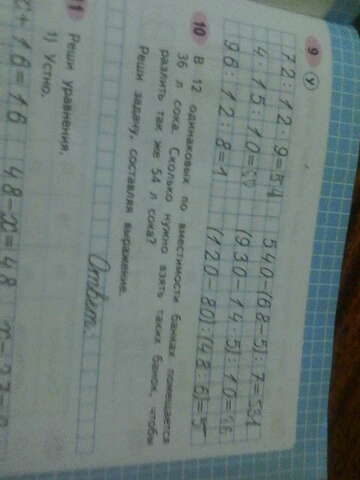 9 У
72:12·9=54 540-(68-5):7=531
4·15:10=60 (930-14·5):10=86
96:12:8=1 (120-80):(48:6)=5
10 В 12 одинаковых по вместимости банках помещается
36 л сока. Сколько нужно взять таких банок, чтобы
разлить так же 54 л сока?
Реши задачу, составляя выражение.
Ответ:
11 Реши уравнения.
1) Устно.
x+16=16 48-x=48